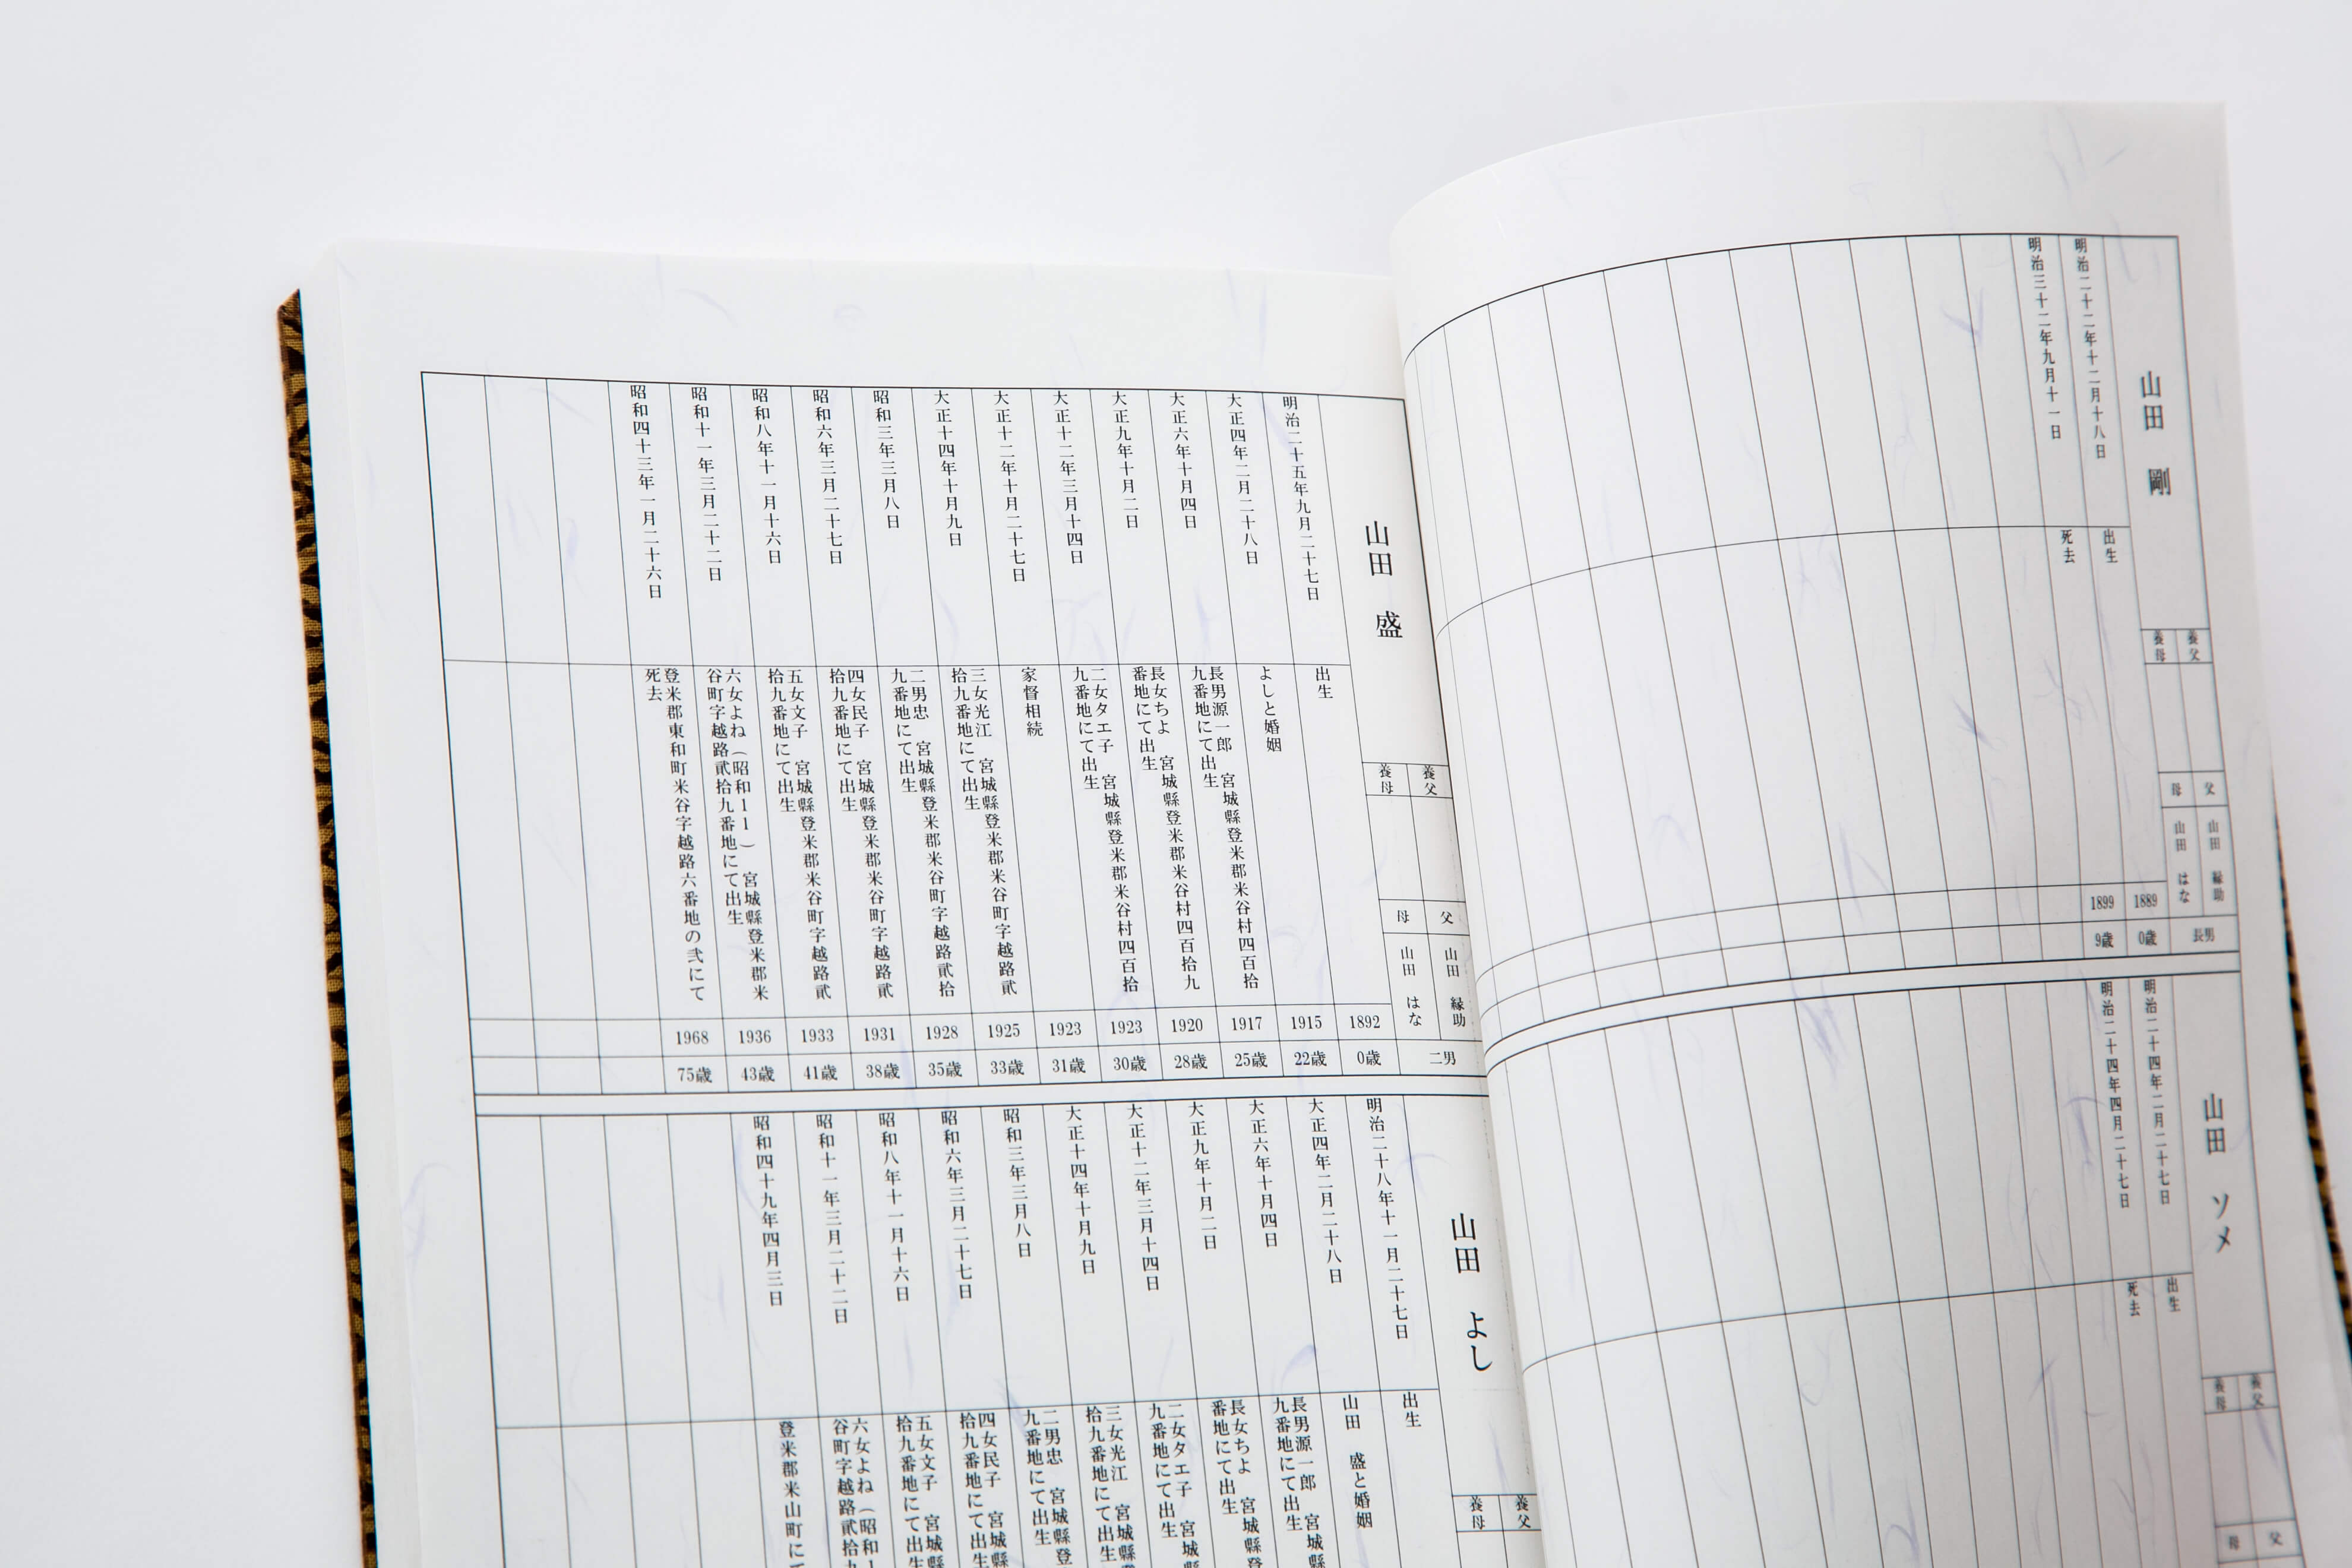 山田 剛
養父
養母
父
山田 縁助
母
山田 はな
長男
明治二十二年十二月十八日
出生
1889
0歳
明治三十二年九月十一日
死去
1899
9歳
山田 ソメ
養父
養母
父
母
明治二十四年二月二十七日
出生
明治二十四年四月二十七日
死去
山田 盛
養父
養母
父
山田 縁助
母
山田 はな
二男
明治二十五年九月二十七日
出生
1892
0歳
大正四年二月二十八日
よしと婚姻
1915
22歳
大正六年十月四日
長男源一郎 宮城縣登米郡米谷村四百拾
九番地にて出生
1917
25歳
大正九年十月二日
長女ちよ 宮城縣登米郡米谷村四百拾九
番地にて出生
1920
28歳
大正十二年三月十四日
二女タエ子 宮城縣登米郡米谷村四百拾
九番地にて出生
1923
30歳
大正十二年十月二十七日
家督相続
1923
31歳
大正十四年十月九日
三女光江 宮城縣登米郡米谷町字越路貳
拾九番地にて出生
1925
33歳
昭和三年三月八日
二男忠 宮城縣登米郡米谷町字越路貳拾
九番地にて出生
1928
35歳
昭和六年三月二十七日
四女民子 宮城縣登米郡米谷町字越路貳
拾九番地にて出生
1931
38歳
昭和八年十一月十六日
五女文子 宮城縣登米郡米谷町字越路貳
拾九番地にて出生
1933
41歳
昭和十一年三月二十二日
六女よね（昭和11） 宮城縣登米郡米
谷町字越路貳拾九番地にて出生
1936
43歳
昭和四十三年一月二十六日
登米郡東和町米谷字越路六番地の弐にて
死去
1968
75歳
山田 よし
養父
養母
明治二十八年十一月二十七日
出生
大正四年二月二十八日
山田 盛と婚姻
大正六年十月四日
長男源一郎 宮城縣
九番地にて出生
大正九年十月二日
長女ちよ 宮城縣
番地にて出生
大正十二年三月十四日
二女タエ子 宮城
九番地にて出生
大正十四年十月九日
三女光江 宮城縣
拾九番地にて出生
昭和三年三月八日
二男忠 宮城縣登
九番地にて出生
昭和六年三月二十七日
四女民子 宮城縣
拾九番地にて出生
昭和八年十一月十六日
五女文子 宮城縣
拾九番地にて出生
昭和十一年三月二十二日
六女よね（昭和1
谷町字越路貳拾九
昭和四十九年四月三日
登米郡米山町に